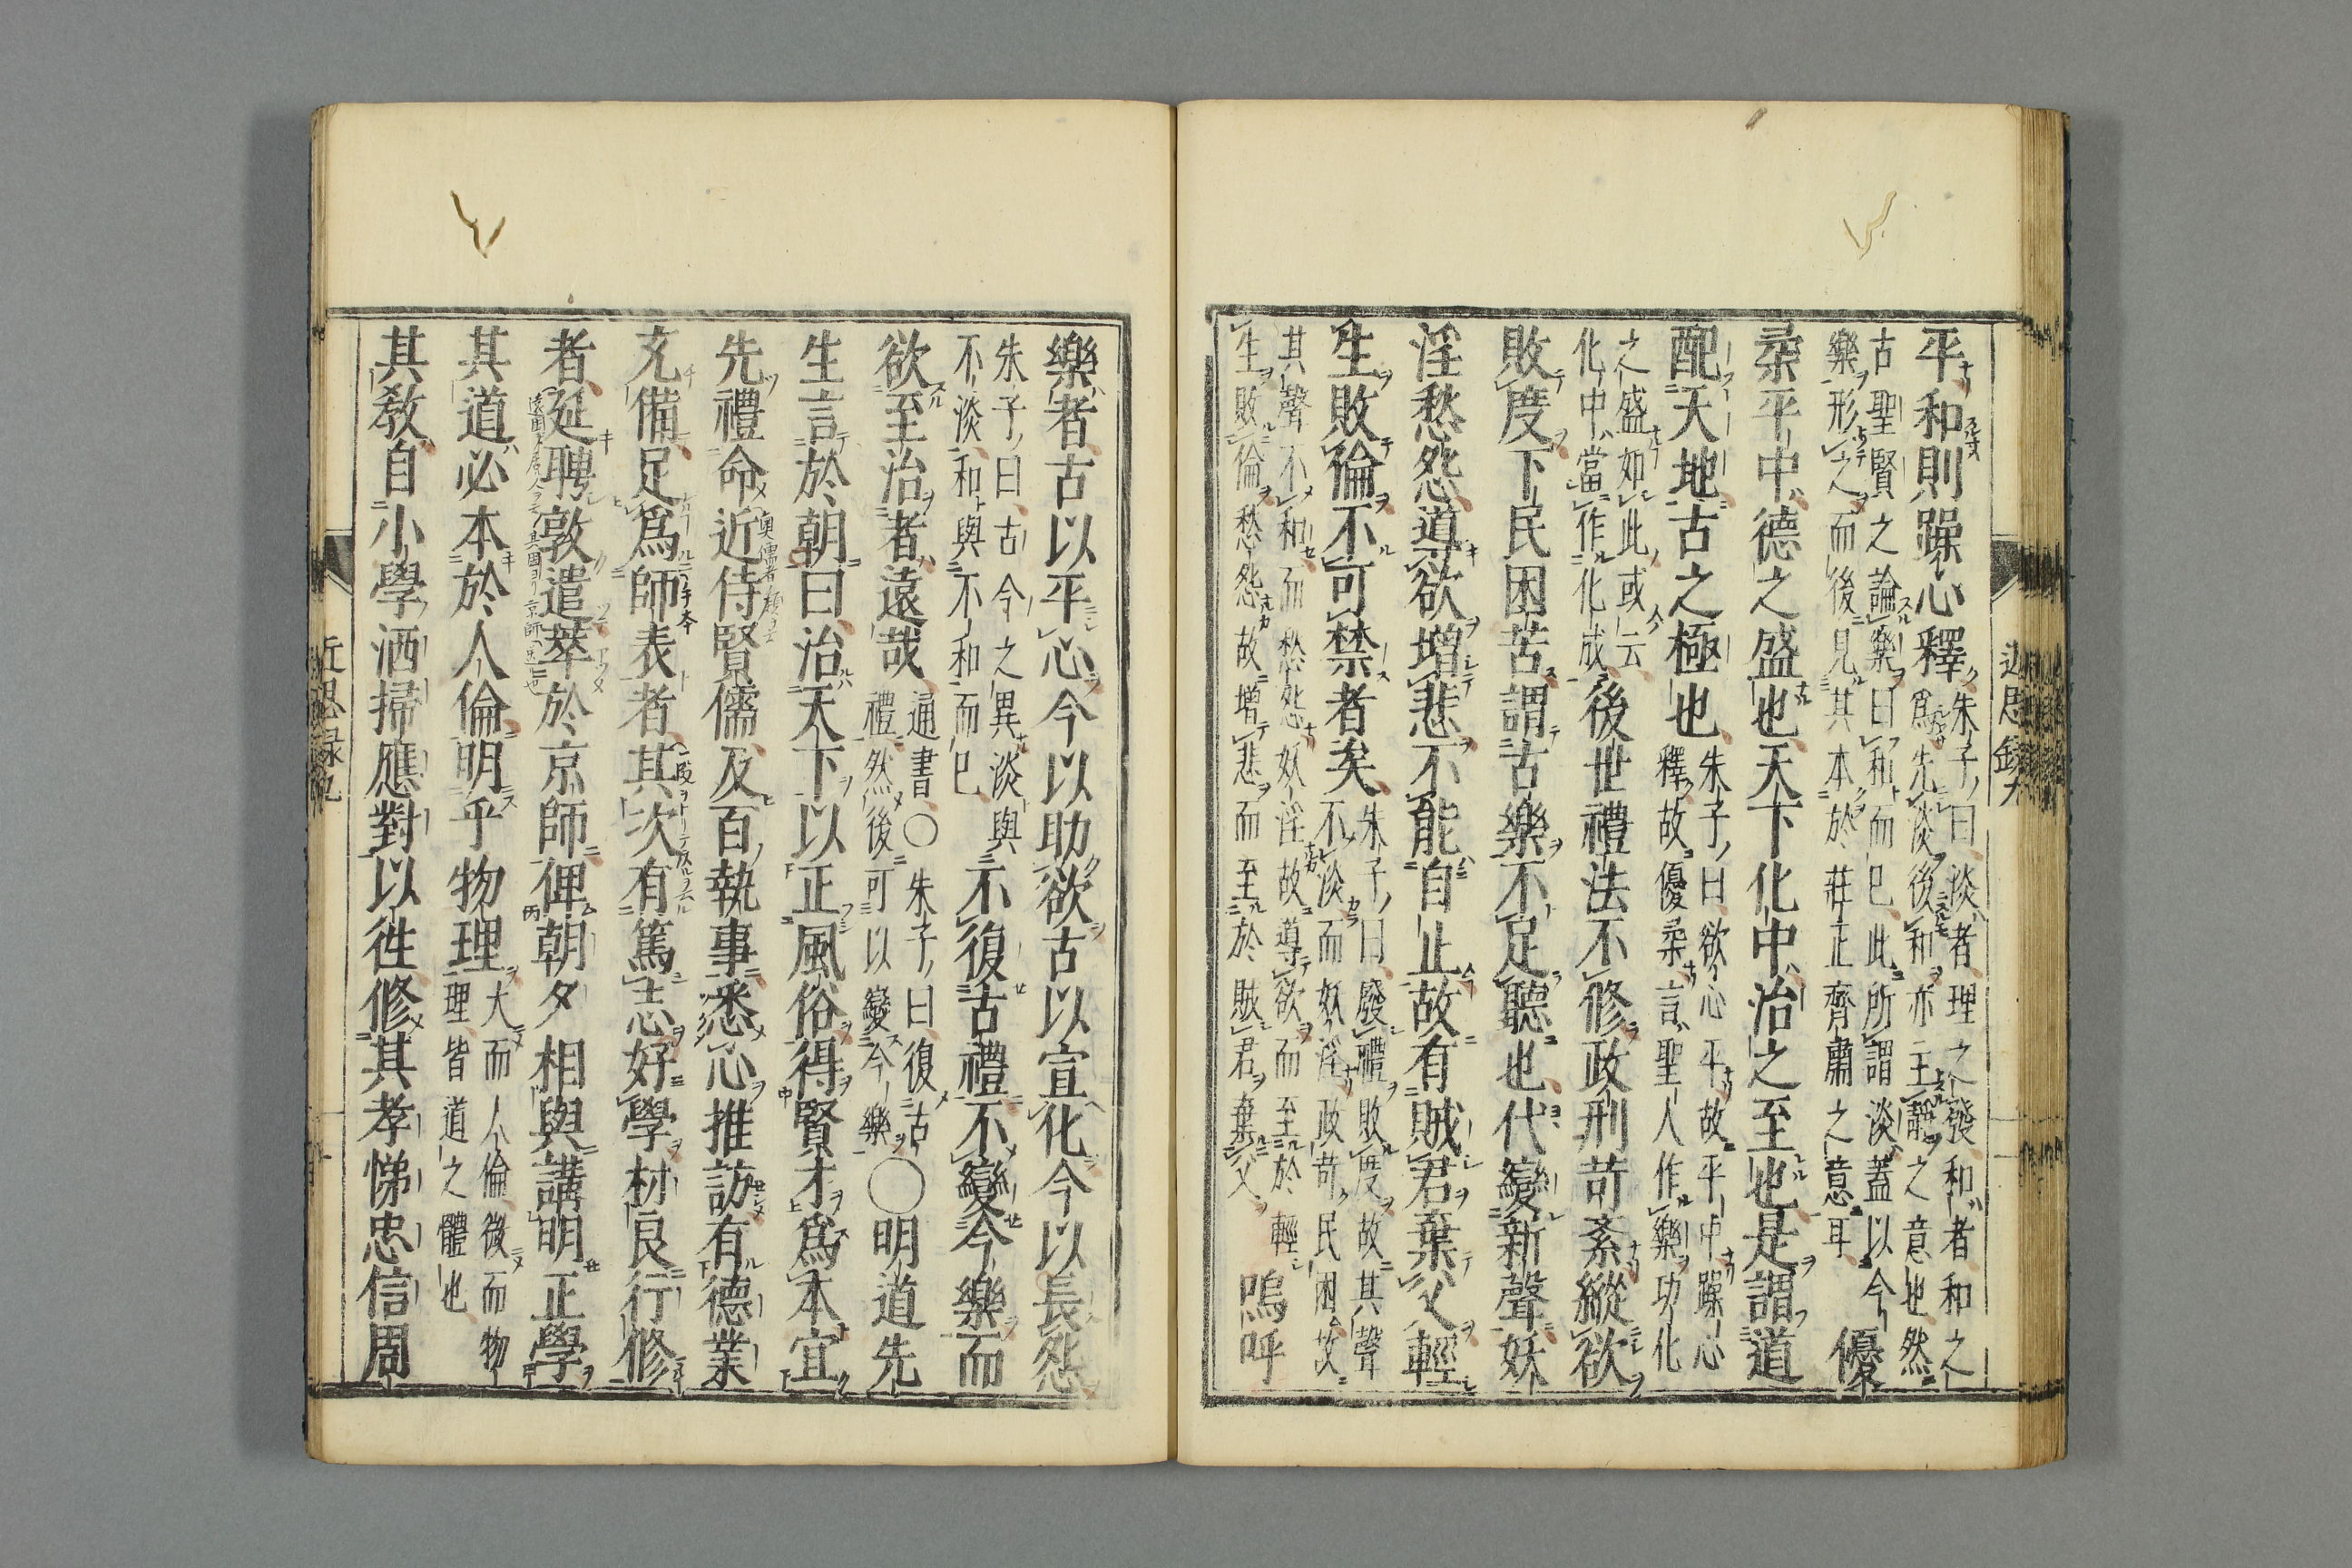 平和則躁心釋
朱子曰淡者理之發和者和之
爲先淡後和亦主靜之意也然
古聖賢之論樂曰和而已此所謂淡蓋以今
樂形之而後見其本於莊正齊肅之意耳
優
柔平中德之盛也天下化中治之至也是謂道
配天地古之極也
朱子曰欲心平故平中躁心
釋故優柔言聖人作樂功化
之盛如此或云
化中當作化成
後世禮法不修政刑苛紊縱欲
敗度下民困苦謂古樂不足聽也代變新聲妖
淫愁怨道欲增悲不能自止故有賊君棄父輕
生敗倫不可禁者矣
朱子曰廢禮敗度故其聲
不淡而妖淫政苛民困故
其聲不和而愁怨妖淫故導欲而至於輕
生敗倫愁怨故增悲而至於賊君棄父
嗚呼
樂者古以平心今以助欲古以宣化今以長怨
朱子曰古今之異淡與
不淡和與不和而已
不復古禮不變今樂而
欲至治者遠哉
通書〇朱子曰復古
禮然後可以變今樂
〇明道先
生言於朝曰治天下以正風俗得賢才爲本宜
先禮命近侍賢儒及百執事悉心推訪有德業
充備足爲師表者其次有篤志好學材良行修
者延聘敦遣萃於京師俾朝夕相與講明正學
其道必本於人倫明乎物理
大而人倫微而物
理皆道之體也
其教自小學洒掃應對以徃修其孝悌忠信周
近思録九